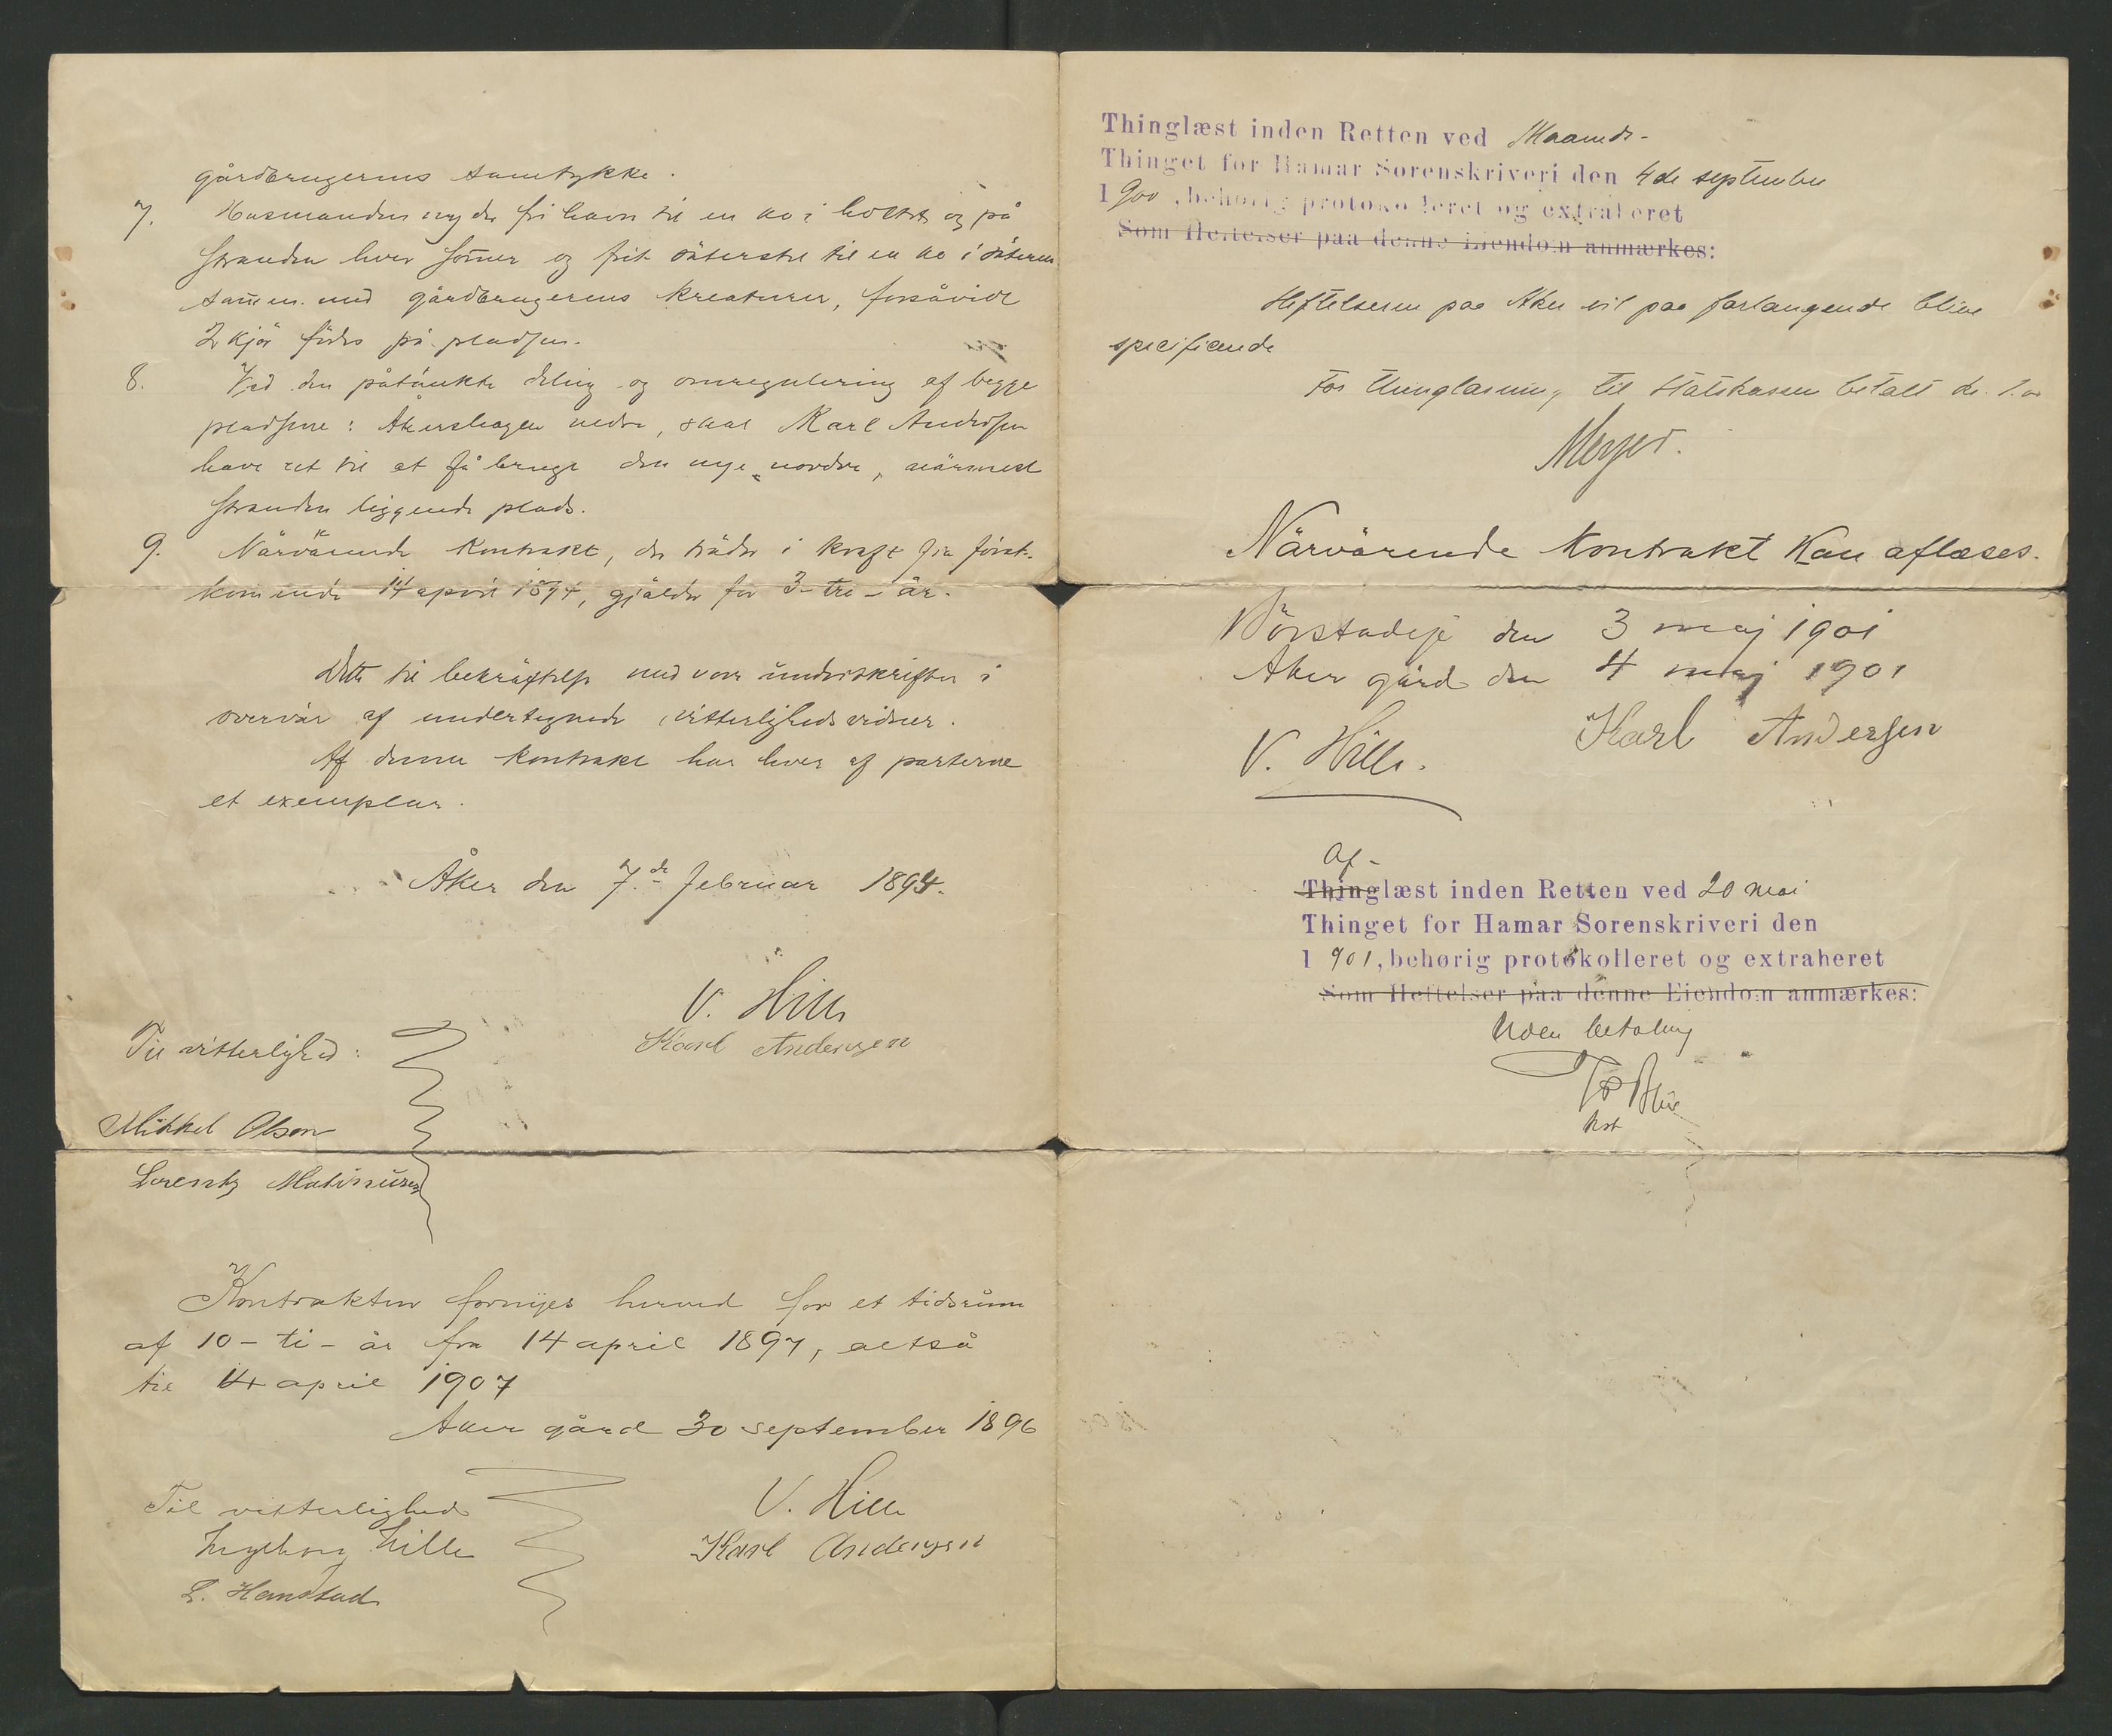 gårdbrugerens samtykke.
7. Husmanden nyder fri havn til en ko i holtet og på
stranden hver somer og frit säterstel til en ko i säteren
samen med gårdbrugerens kreaturer, forsåvidt
2 kjör födes på pladsen.
8. Ved den påtänkte deling og omregulering af begge
pladsene: Åkershagen nedre, skal Karl Andersen
have ret til at få bruge den nye nordre, närmest
stranden liggende plads.
9. Närvärende kontrakt, der träder i kraft fra först-
komende 14 april 1894, gjälder for 3 - tre - år.
Dette til bekräftelse med vore underskrifter i
overvär af undertegnede vitterlighedsvidner.
Af denne kontrakt har hver af parterne
et exemplar.
Åker den 7.de februar 1894.
V. Hille
Karl Andersen
Til vitterlighed:
Mikkel Olsen
Lorents
Kontrakten fornyes herved for et tidsrum
af 10 - ti - år fra 14 april 1897, altså
til 14 april 1907
Aker gård 30 september 1896
V. Hille
Karl Andersen
Til vitterlighed
Ingeborg Hille
L. Hanstad
Thinglæst inden Retten ved Maaneds-
Thinget for Hamar Sorenskriveri den 4de september
1900, behørig protokolleret og extraheret
Som Heftelser paa denne Eiendom anmærkes:
Heftelserne paa Aker vil paa forlangende blive
specificerede
For thinglæsning til Statskassen betalt kr. 1.00
Närvärende kontrakt kan aflæses.
den 3 maj 1901
Aker gård den 4 maj 1901
V. Hille.
Karl Andersen
Af-
Thinglæst inden Retten ved 20 mai
Thinget for Hamar Sorenskriveri den
1901, behørig protokolleret og extraheret
Som Heftelser paa denne Eiendom anmærkes:
Uden betaling